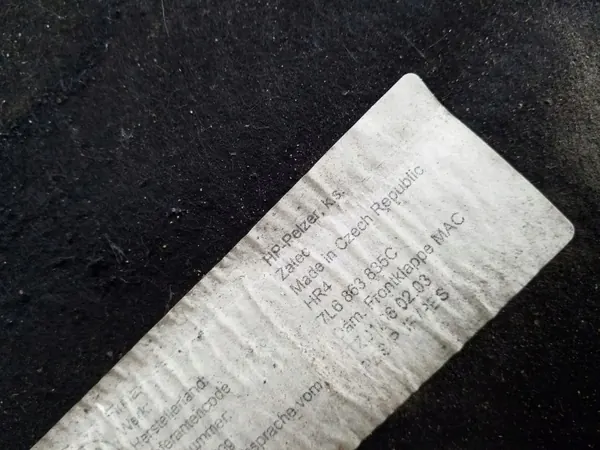 HP-Pelzer, k.s.
Zatec
Made in Czech Republic
HR4
7L6 863 835C
Däm. Frontklappe MAC
02.03
Werk:
Herstellerland:
ferantencode
ummer:
sprache vom